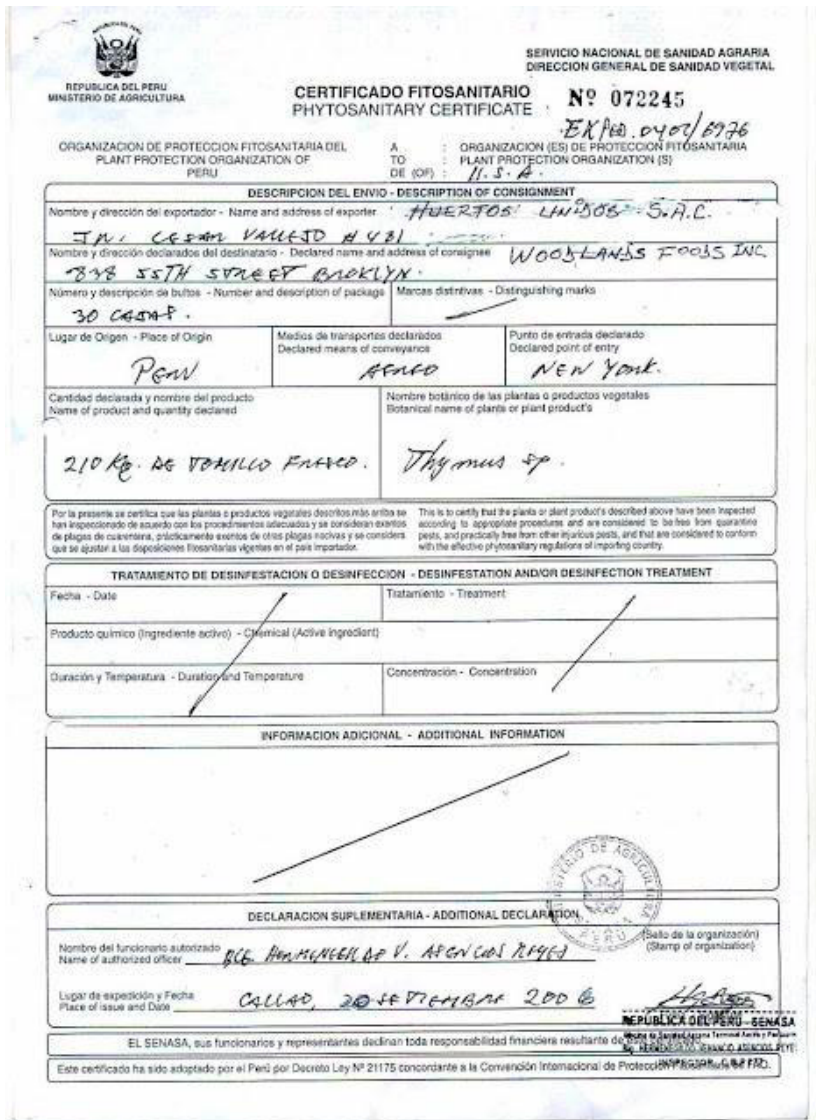 REPUBLICA DEL PERU
MINISTERIO DE AGRICULTURA
SERVICIO NACIONAL DE SANIDAD AGRARIA
DIRECCION GENERAL DE SANIDAD VEGETAL
CERTIFICADO FITOSANITARIO
PHYTOSANITARY CERTIFICATE
Nº 072245
EXPED.
ORGANIZACION DE PROTECCION FITOSANITARIA DEL
PLANT PROTECTION ORGANIZATION OF
PERU
A : ORGANIZACION (ES) DE PROTECCION FITOSANITARIA
TO : PLANT PROTECTION ORGANIZATION (S)
DE (OF) : U.S.A.
DESCRIPCION DEL ENVIO - DESCRIPTION OF CONSIGNMENT
Nombre y dirección del exportador - Name and address of exporter HUERTOS LINDOS S.A.C.
JR. CESAR VALLEJO # 481
Nombre y dirección declarados del destinatario - Declared name and address of consignee WOODLANDS FOODS INC.
838 55TH STREET BROKLYN.
Número y descripción de bultos - Number and description of package
30 CAJAS.
Marcas distintivas - Distinguishing marks
Lugar de Origen - Place of Origin
PERU
Medios de transportes declarados
Declared means of conveyance
AEREO
Punto de entrada declarado
Declared point of entry
NEW YORK.
Cantidad declarada y nombre del producto
Name of product and quantity declared
210 Kg. DE TOMILLO FRESCO.
Nombre botánico de las plantas o productos vegetales
Botanical name of plants or plant product's
Thymus sp.
Por la presente se certifica que las plantas o productos vegetales descritos más arriba se
han inspeccionado de acuerdo con los procedimientos adecuados y se consideran exentos
de plagas de cuarentena, prácticamente exentos de otras plagas nocivas y se considera
que se ajustan a las disposiciones fitosanitarias vigentes en el país importador.
This is to certify that the plants or plant product's described above have been inspected
according to appropriate procedures and are considered to be free from quarantine
pests, and practically free from other injurious pests, and that are considered to conform
with the effective phytosanitary regulations of importing country.
TRATAMIENTO DE DESINFESTACION O DESINFECCION - DESINFESTATION AND/OR DESINFECTION TREATMENT
Fecha - Date
Tratamiento - Treatment
Producto químico (Ingrediente activo) - Chemical (Active ingredient)
Duración y Temperatura - Duration and Temperature
Concentración - Concentration
INFORMACION ADICIONAL - ADDITIONAL INFORMATION
MINISTERIO DE AGRICULTURA
PERU
DECLARACION SUPLEMENTARIA - ADDITIONAL DECLARATION
Nombre del funcionario autorizado
Name of authorized officer V. ASENCIOS REYES
(Sello de la organización)
(Stamp of organization)
Lugar de expedición y Fecha
Place of issue and Date CALLAO, 20 SETIEMBRE 2006
REPUBLICA DEL PERU - SENASA
INSPECTOR
EL SENASA, sus funcionarios y representantes declinan toda responsabilidad financiera resultante de
Este certificado ha sido adoptado por el Perú por Decreto Ley Nº 21175 concordante a la Convención Internacional de Protección Fitosanitaria de FAO.